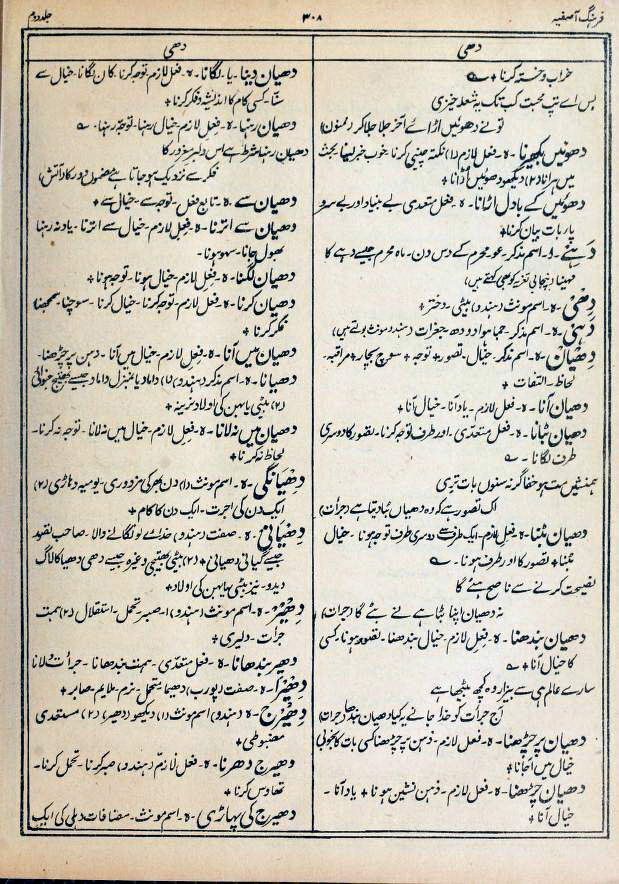 فرہنگ آصفیہ
۳۰۸
جلد دوم
دھی
خراب و خستہ کرنا +
بس اے تپِ محبت کب تک یہ شعلہ خیزی
تو نے دھوئیں اڑائے آخر جلا جلا کر (ممنون)
دھوئیں بکھیرنا - ہ - فعل لازم (۱) نکتہ چینی کرنا - خوب خبر لینا بحث
میں ہرانا (۲) دیکھو دھوئیں اُڑانا +
دھوئیں کے بادل اڑانا - ہ - فعل متعدی بے بنیاد اور بے سر و
پا بات بیان کرنا +
اسم مذکر - عو - محرم کے دس دن - ماہ محرم جیسے دہے کا
مہینا (پنجابی تعزیہ کو بھی کہتے ہیں)
دھی - ہ - اسم مونث (ہندو) بیٹی - دختر +
دہی - ہ - اسم مذکر - جما ہوا دودھ - جغرات (ہندو مونث بولتے ہیں)
دھیان - ہ - اسم مذکر - خیال - تصور + توجہ + سوچ بچار + مراقبہ -
لحاظ - التفات +
دھیان آنا - ہ - فعل لازم - یاد آنا - خیال آنا +
دھیان بٹانا - ہ - فعل متعدی - اور طرف توجہ کرنا - تصور کا دوسری
طرف لگانا -
ہمنشیں مت ہو خفا گر نہ سنوں بات تری
اک تصور ہے کہ وہ دھیان بٹا دیتا ہے (جرأت)
دھیان بٹنا - ہ - فعل لازم - ایک طرف سے دوسری طرف توجہ ہونا - خیال
بٹنا + تصور کا اور طرف ہونا -
نصیحت کرنے سے ناصح ہٹے گا
نہ دھیان اپنا بٹا ہے نے بٹے گا (جرأت)
دھیان بندھنا - ہ - فعل لازم - خیال بندھنا - تصور ہونا، کسی
کا خیال آنا +
سارے عالم ہی سے بیزار وہ کچھ بیٹھا ہے
آج جرأت کو خدا جانے یہ کیا دھیان بندھا (جرأت)
دھیان پر چڑھنا - ہ - فعل لازم - ذہن پر چڑھنا کسی بات کا بخوبی
خیال میں آ جانا +
دھیان چڑھنا - ہ - فعل لازم - ذہن نشین ہونا + یاد آنا -
خیال آنا +
دھی
دھیان دینا - یا - لگانا - ہ - فعل لازم توجہ کرنا - کان لگانا - خیال سے
سننا - کسی کام کا اندیشہ و فکر کرنا +
دھیان رہنا - ہ - فعل لازم - خیال رہنا - توجہ رہنا -
دھیان رہنا شرط ہے اس دلبر مغرور کا
فکر سے نزدیک ہو جاتا ہے مضمون دور کا (آتش)
دھیان سے - ہ - تابع فعل - توجہ سے - خیال سے +
دھیان سے اترنا - ہ - فعل لازم - خیال سے اترنا - یاد نہ رہنا
بھول جانا - سہو ہونا -
دھیان لگنا - ہ - فعل لازم - خیال ہونا - توجہ ہونا +
دھیان کرنا - ہ - فعل لازم - توجہ کرنا - خیال کرنا - سوچنا - سمجھنا
فکر کرنا +
دھیان میں آنا - ہ - فعل لازم - خیال میں آنا - ذہن پر چڑھنا -
دھیانا - ہ - اسم مذکر (ہندو) (۱) داماد یا بمنزلِ داماد جیسے
(۲) بیٹی یا بہن کی اولاد نرینہ +
دھیان میں نہ لانا - ہ - فعل لازم - خیال میں نہ لانا - توجہ نہ کرنا -
لحاظ نہ کرنا +
دھیانگی - ہ - اسم مونث (۱) دن بھر کی مزدوری - یومیہ دہاڑی (۲)
ایک دن کی اجرت - ایک دن کا کام +
دھیانی - ہ - صفت (ہندو) خدا سے لو لگانے والا - صاحب تصور
جیسے گیانی دھیانی + (۲) بیٹی بھتیجی وغیرہ جیسے دھی دھیانی کا لاگ
دیدو - نیز بیٹی یا بہن کی اولاد +
دھیر - ہ - اسم مونث (ہندو) صبر - تحمل - استقلال (۲) ہمت
جرأت - دلیری +
دھیر بندھانا - ہ - فعل متعدی - ہمت بندھانا - جرأت دلانا
دھیرا - ہ - صفت (پورب) دھیما - متحمل - نرم - ملایم - صابر +
دھیرج - ہ - (ہندو) اسم مونث (۱) دیکھو (دھیر) (۲) مستقدی
مضبوطی +
دھیرج دھرنا - ہ - فعل لازم (ہندو) صبر کرنا - تحمل کرنا -
کرنا +
دھیرج کی پہاڑی - ہ - اسم مونث - مضافات دہلی کی ایک